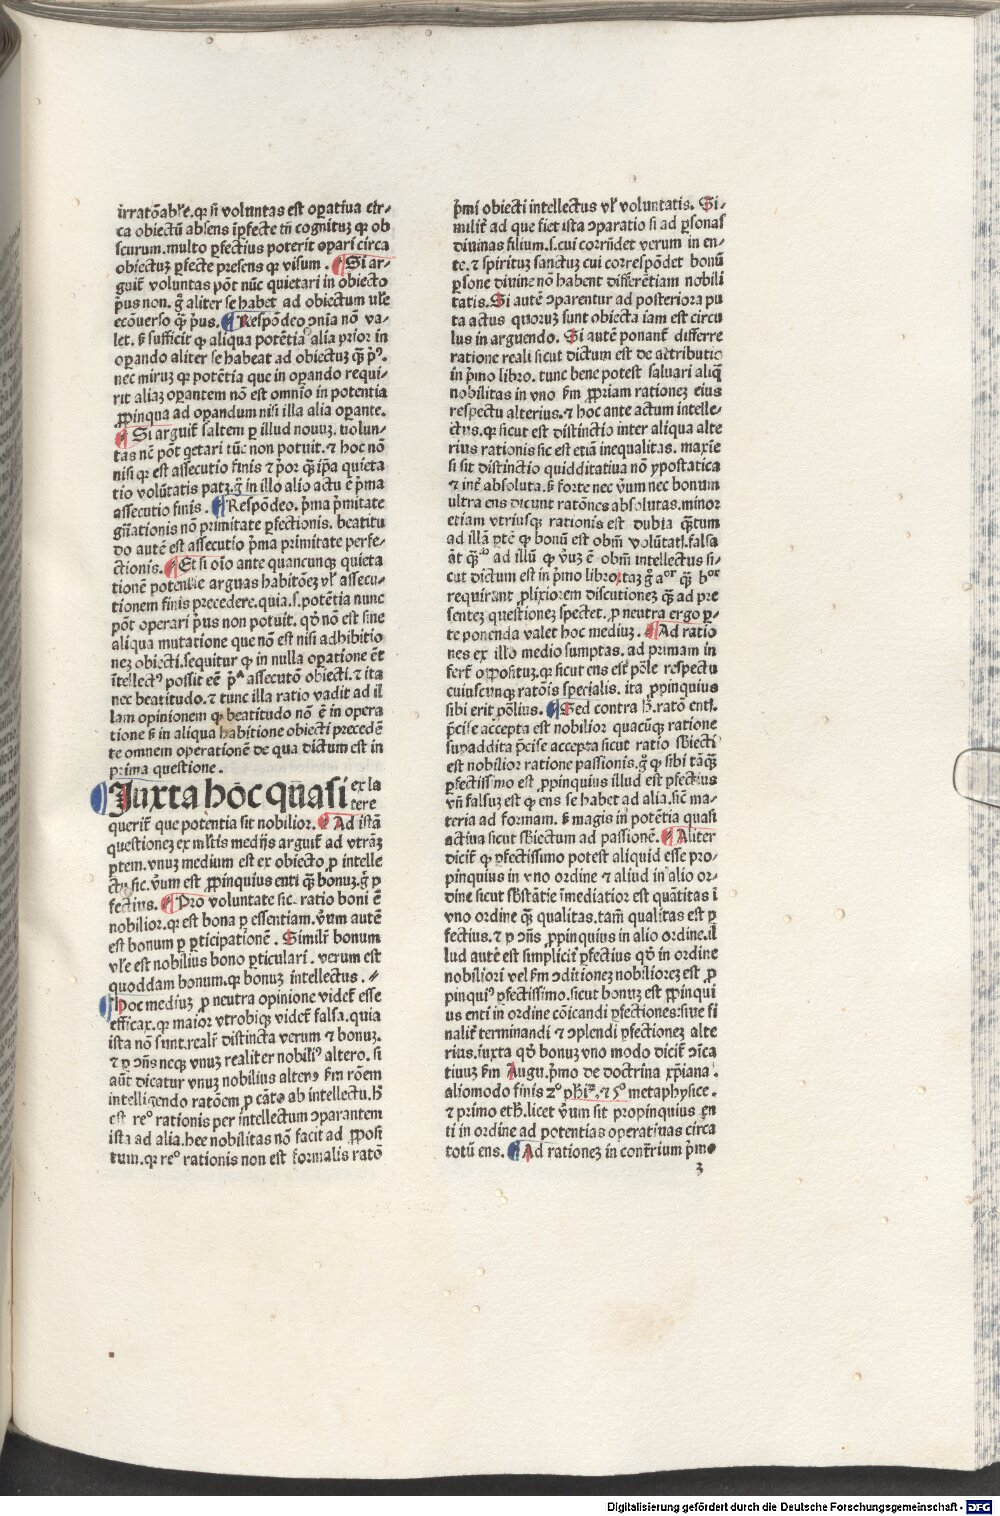 irratōabl'e.qꝛ si voluntas est oꝑatiua cir-
ca obiectū absens īꝑfecte tn̄ cognituꝫ qꝛ ob
scurum.multo ꝑfectius poterit opari circa
obiectuꝫ ꝑfecte presens qꝛ visum. Si ar-
guit̄ voluntas pōt nūc quietari in obiecto
p̄us non.g̊ aliter se habet ad obiectum ul'e
ecōuerso q̄ꝫ p̄us. Respōdeo ↄn̄ia nō va-
let.ſꝫ sufficit ꝙ aliqua potētia alia prior in
oꝑando aliter se habeat ad obiectuꝫ q̄ꝫ p̄ꝰ.
nec miruꝫ qꝛ potētia que in oꝑando requi-
rit aliaꝫ oꝑantem nō est omnīo in potentia
ꝓpinqua ad oꝑandum nisi illa alia oꝑante.
Si arguit̄ saltem ꝑ illud nouuꝫ. uolun-
tas nc̄ pōt q̄etari tūc non potuit.⁊ hoc nō
nisi qꝛ est assecutio finis ⁊ p̄or q̄ꝫ ip̄a quieta
tio volūtatis patꝫ.g̊ in illo alio actu ē p̄ma
assecutio finis. Respōdeo.p̄ma p̄mitate
gn̄ationis nō primitate ꝑfectionis. beatitu
do autē est assecutio p̄ma primitate perfe-
ctionis. Et si oīo ante quancunqꝫ quieta
tionē potentie arguas habitōeꝫ vl' assecu-
tionem finis precedere.quia.s.potētia nunc
pōt operari p̄us non potuit. qd̄ nō est sine
aliqua mutatione que nō est nisi adhibitio
neꝫ obiecti.sequitur ꝙ in nulla oꝑatione ēt
ītellectꝰ possit eē pᵃ assecutō obiecti.⁊ ita
nec beatitudo.⁊ tunc illa ratio vadit ad il
lam opinionem ꝙ beatitudo nō ē in opera
tione ſꝫ in aliqua habitione obiecti precedē
te omnem operationē de qua dictum est in
prima questione.
Juxta hōc qn̄asi ex la
tere
querit̄ que potentia sit nobilior. Ad istā
questioneꝫ ex ml'tis medijs arguit̄ ad vtrāꝫ
ꝑtem.vnuꝫ medium est ex obiecto ꝓ intelle
ctu sic.v̄um est ꝓpinquius enti q̄ꝫ bonuꝫ.g̊ ꝑ
fectius. Pro voluntate sic. ratio boni ē
nobilior.qꝛ est bona ꝑ essentiam.v̄um autē
est bonum ꝑ ꝑticipationē. Similr̄ bonum
vl'e est nobilius bono ꝑticulari. verum est
quoddam bonum.qꝛ bonuꝫ intellectus.
hoc mediuꝫ ꝓ neutra opinione videt̄ esse
efficax.qꝛ maior vtrobiqꝫ videt̄ falsa.quia
ista nō sunt.realr̄ distincta verum ⁊ bonuꝫ.
⁊ ꝑ ↄn̄s neqꝫ vnuꝫ realiter nobiliꝰ altero. si
aūt dicatur vnuꝫ nobilius altero ẜm rōem
intelligendo ratōem ꝓ cāto ab intellectu.hͦ
est reᵒ rationis per intellectum ↄparantem
ista ad alia.hec nobilitas nō facit ad ꝓposi
tum.qꝛ reᵒ rationis non est formalis ratō
p̄mi obiecti intellectus vl' voluntatis. Si-
milit̄ ad que fiet ista ↄparatio si ad ꝑsonas
diuinas filium.s.cui corrn̄det verum in en-
te.⁊ spirituꝫ sanctuꝫ cui correspōdet bonū
ꝑsone diuine nō habent differētiam nobili
tatis. Si autē ↄparentur ad posteriora pu
ta actus quoruꝫ sunt obiecta iam est circu
lus in arguendo. Si autē ponant̄ differre
ratione reali sicut dictum est de attributis
in p̄mo libro. tunc bene potest saluari aliq̄
nobilitas in vno ẜm ꝓpriam rationeꝫ eius
respectu alterius.⁊ hoc ante actum intelle-
ctus.qꝛ sicut est distinctio inter aliqua alte
rius rationis sic est etiā inequalitas. maxīe
si sit distinctio quidditatiua nō ypostatica
⁊ int̄ absoluta.ſꝫ forte nec v̄um nec bonum
ultra ens dicunt ratōnes absolutas.minor
etiam vtriusqꝫ rationis est dubia q̄ꝫtum
ad illā ꝑtē ꝙ bonū est obm̄ volūtatꝭ.falsa
āt q̄ꝫᵗᵘ ad illū ꝙ v̄uꝫ ē obm̄ intellectus si-
cut dictum est in p̄mo libro.taꝫ g̊ aᵒʳ q̄ꝫ bᵒʳ
requirunt ꝓlixiorem discutioneꝫ q̄ꝫ ad pre
senteꝫ questioneꝫ spectet. ꝓ neutra ergo ꝑ-
te ponenda valet hoc mediuꝫ. Ad ratio
nes ex illo medio sumptas. ad primam in
fert̄ opposituꝫ.qꝛ sicut ens est pōle respectu
cuiuscunqꝫ ratōis specialis. ita ꝓpinquius
sibi erit pōlius. Sed contra hͦ.ratō entꝭ.
p̄cise accepta est nobilior quacūqꝫ ratione
supaddita p̄cise accepta sicut ratio sb̄iecti
est nobilior ratione passionis.g̊ ꝙ sibi tāqꝫ
ꝑfectissimo est ꝓpinquius illud est ꝑfectius
vn̄ falsuꝫ est ꝙ ens se habet ad alia.sic̄ ma-
teria ad formam. ſꝫ magis in potētia quasi
actiua sicut sb̄iectum ad passionē. Aliter
dicit̄ ꝙ ꝑfectissimo potest aliquid esse pro-
pinquius in vno ordine ⁊ aliud in alio or-
dine sicut sb̄stātie īmediatior est quātitas ī
vno ordine q̄ꝫ qualitas.tam̄ qualitas est ꝑ
fectius.⁊ ꝑ ↄn̄s ꝓpinquius in alio ordine.il
lud autē est simplicit̄ ꝑfectius qd̄ in ordine
nobiliori vel ẜm ↄditioneꝫ nobilioreꝫ est ꝓ
pinquiꝰ ꝑfectissimo.sicut bonuꝫ est ꝓpinqui
us enti in ordine cōicandi ꝑfectiones:siue fi
nalit̄ terminandi ⁊ ↄplendi ꝑfectioneꝫ alte
rias.iuxta qd̄ bonuꝫ vno modo dicit̄ ↄīca
tiuuꝫ ẜm Augu.p̄mo de doctrina xp̄iana.
aliomodo finis 2° phīꝝ.⁊ 5° metaphysice.
⁊ primo eth̄.licet v̄um sit propinquius en
ti in ordine ad potentias operatiuas circa
totū ens. Ad rationeꝫ in contr̄rium p̄mo
3
Digitalisierung gefördert durch die Deutsche Forschungsgemeinschaft - DFG